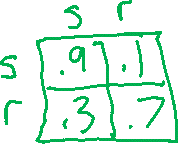 s r
s .9 .1
r .3 .7